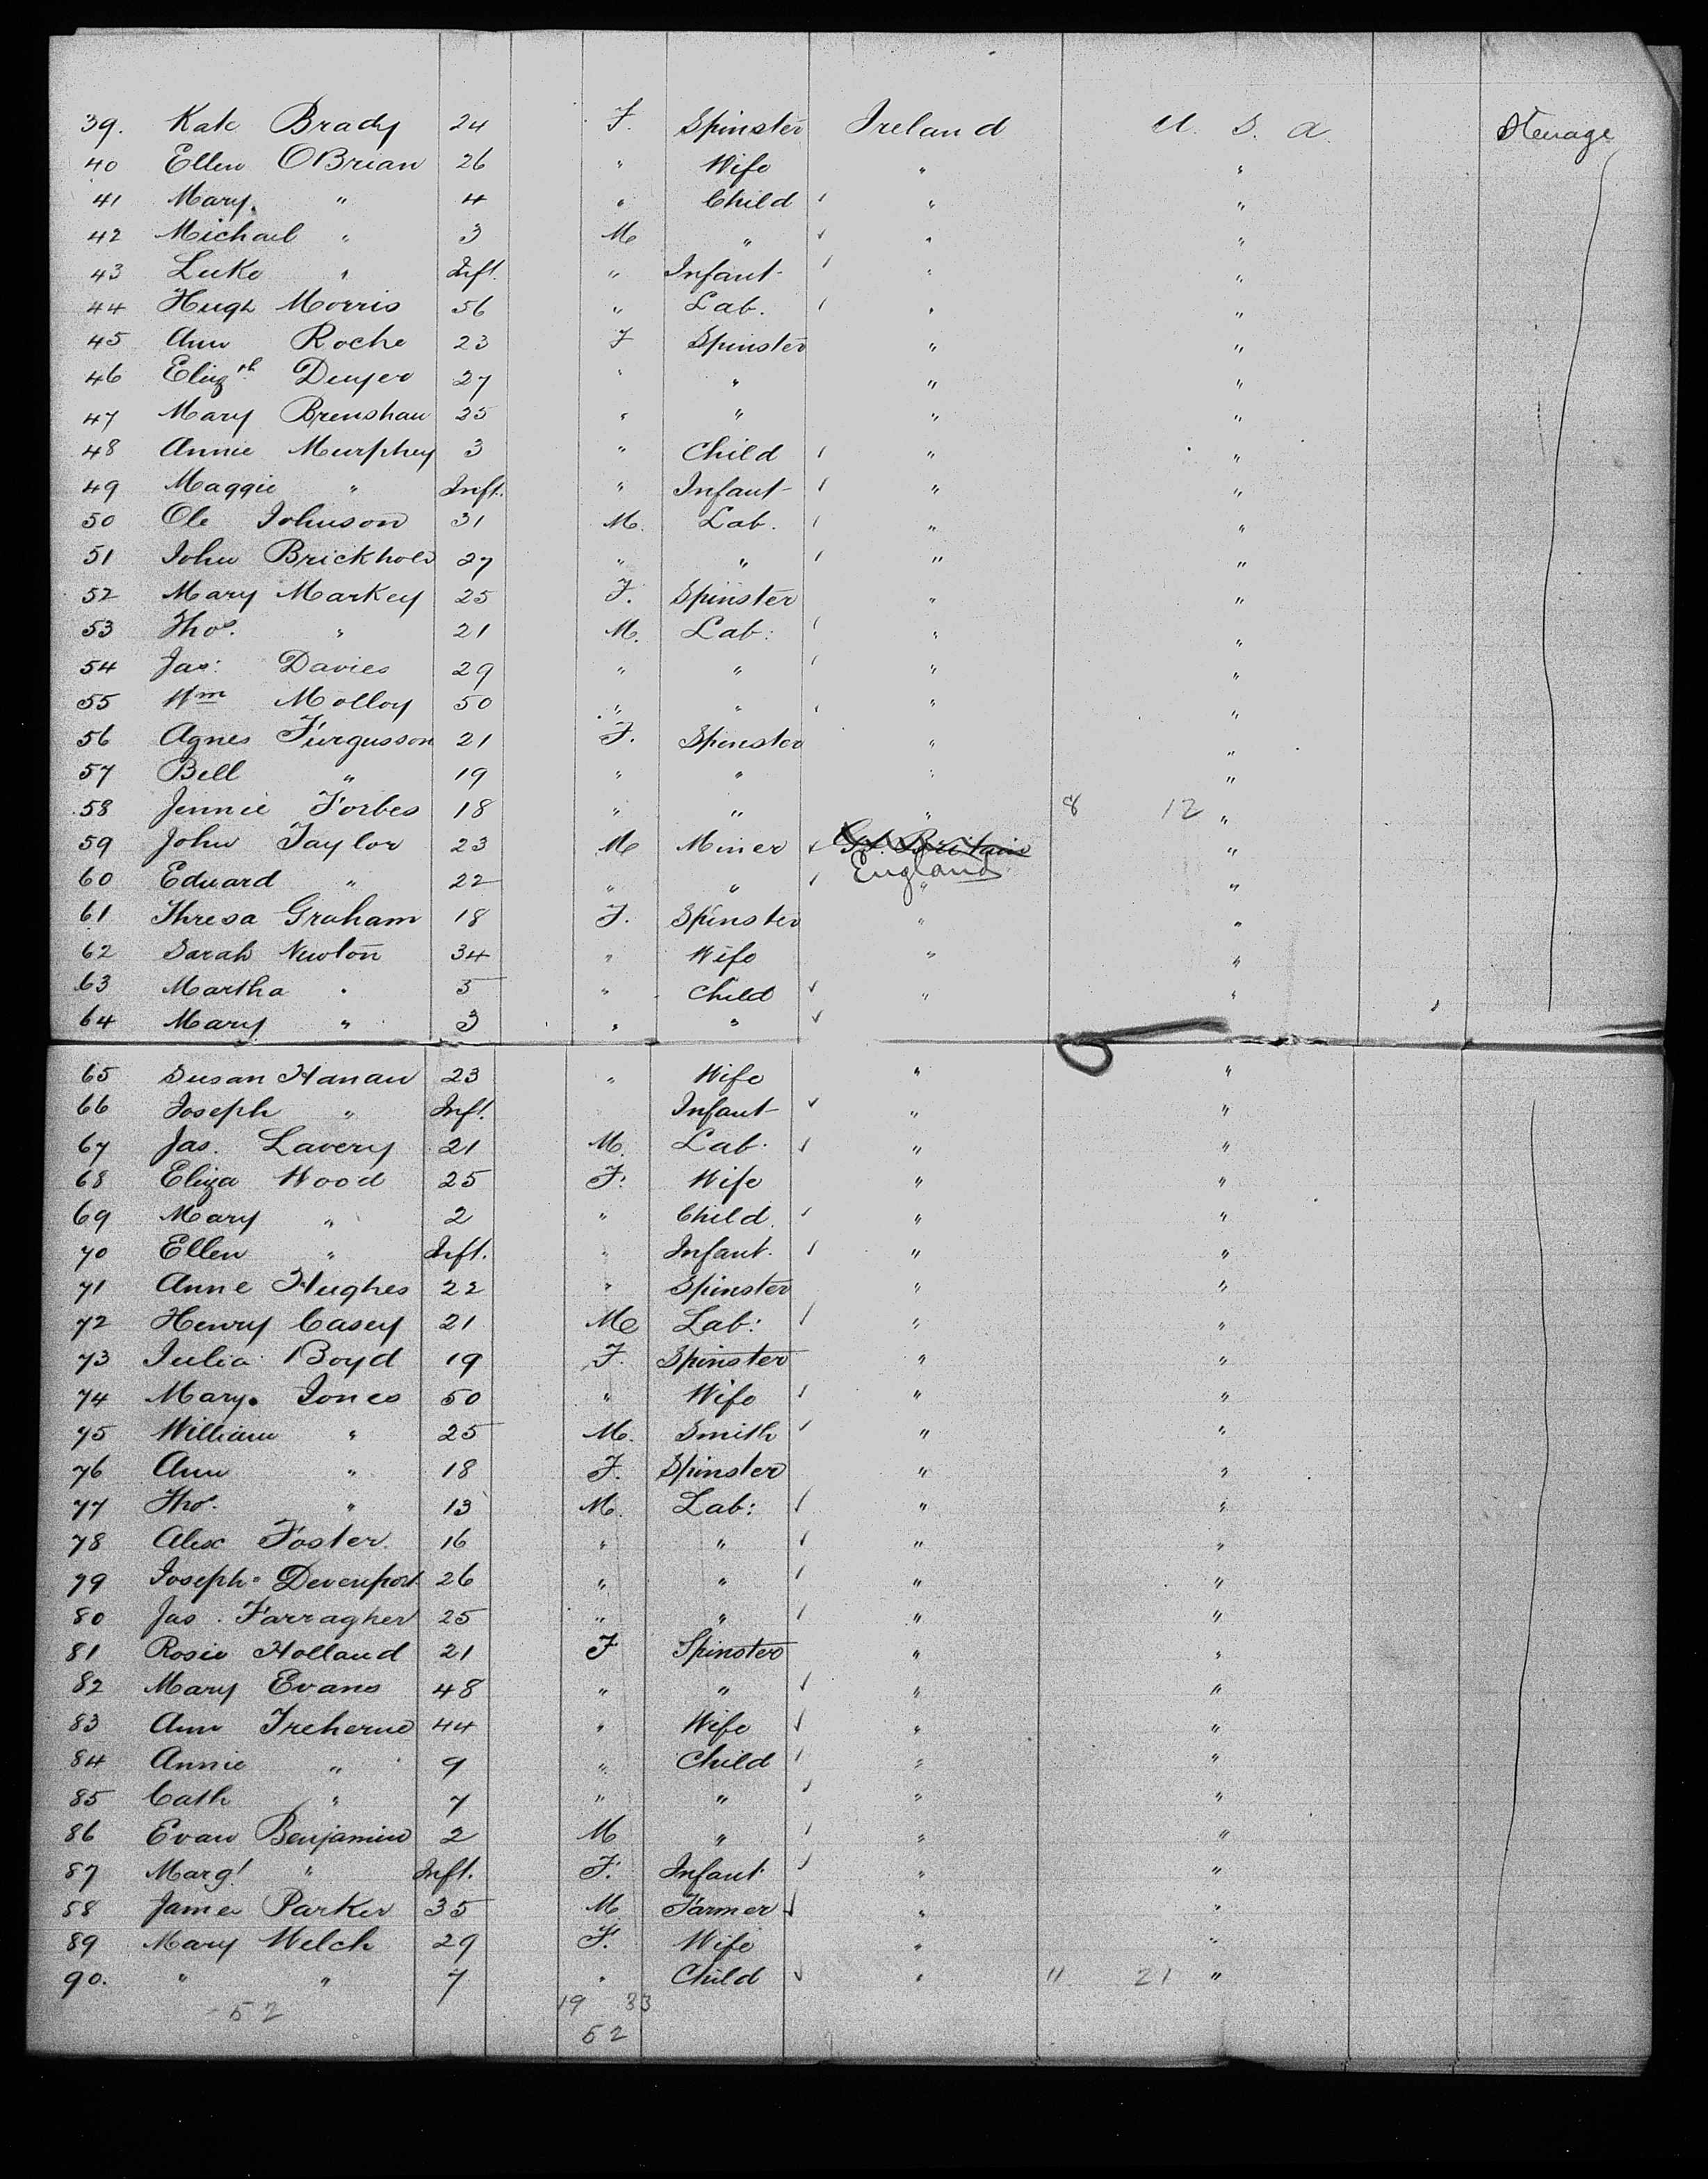 39. Kate Brady 24 F. Spinster Ireland U. S. A. Steerage
40 Ellen OBrian 26 " Wife " "
41 Mary " 4 " Child " "
42 Michael " 3 M " " "
43 Luke " Inft. " Infant " "
44 Hugh Morris 56 " Lab. " "
45 Ann Roche 23 F Spinster " "
46 Elizth 27 " " " "
47 Mary Brenshau 25 " " " "
48 Annie Murphey 3 " Child " "
49 Maggie " Inft. " Infant " "
50 Ole Johnson 31 M. Lab. " "
51 John Brickhold 27 " " " "
52 Mary Markey 25 F. Spinster " "
53 Thos. " 21 M. Lab: " "
54 Jas: Davies 29 " " " "
55 Wm Molloy 50 " " " "
56 Agnes Furgusson 21 F. Spinster " "
57 Bell " 19 " " " "
58 Jennie Forbes 18 " " " 8 12 "
59 John Taylor 23 M Miner Gt. Britain "
England
60 Edward " 22 " " " "
61 Thresa Graham 18 F. Spinster " "
62 Sarah Newton 34 " Wife " "
63 Martha " 5 " Child " "
64 Mary " 3 " "
65 Susan Hanau 23 " Wife " "
66 Joseph " Inft. Infant " "
67 Jas. Lavery 21 M. Lab. " "
68 Eliza Wood 25 F. Wife " "
69 Mary " 2 " Child " "
70 Ellen " Inft. " Infant " "
71 Anne Hughes 22 " Spinster " "
72 Henry Casey 21 M Lab: " "
73 Julia Boyd 19 F. Spinster " "
74 Mary. Jones 50 " Wife " "
75 William " 25 M. Smith " "
76 Ann " 18 F. Spinster " "
77 Thos. " 13 M. Lab: " "
78 Alex Foster 16 " " " "
79 Joseph Devenport 26 " " " "
80 Jas. Farragher 25 " " " "
81 Rosie Holland 21 F Spinster " "
82 Mary Evans 48 " " " "
83 Ann Treherne 44 " Wife " "
84 Annie " 9 " Child " "
85 Cath " 7 " " " "
86 Evan Benjamin 2 M " " "
87 Margt " Inft. F. Infant " "
88 James Parker 35 M Farmer " "
89 Mary Welch 29 F. Wife " "
90. " " 7 " Child " 11 21 "
52 19 33
52